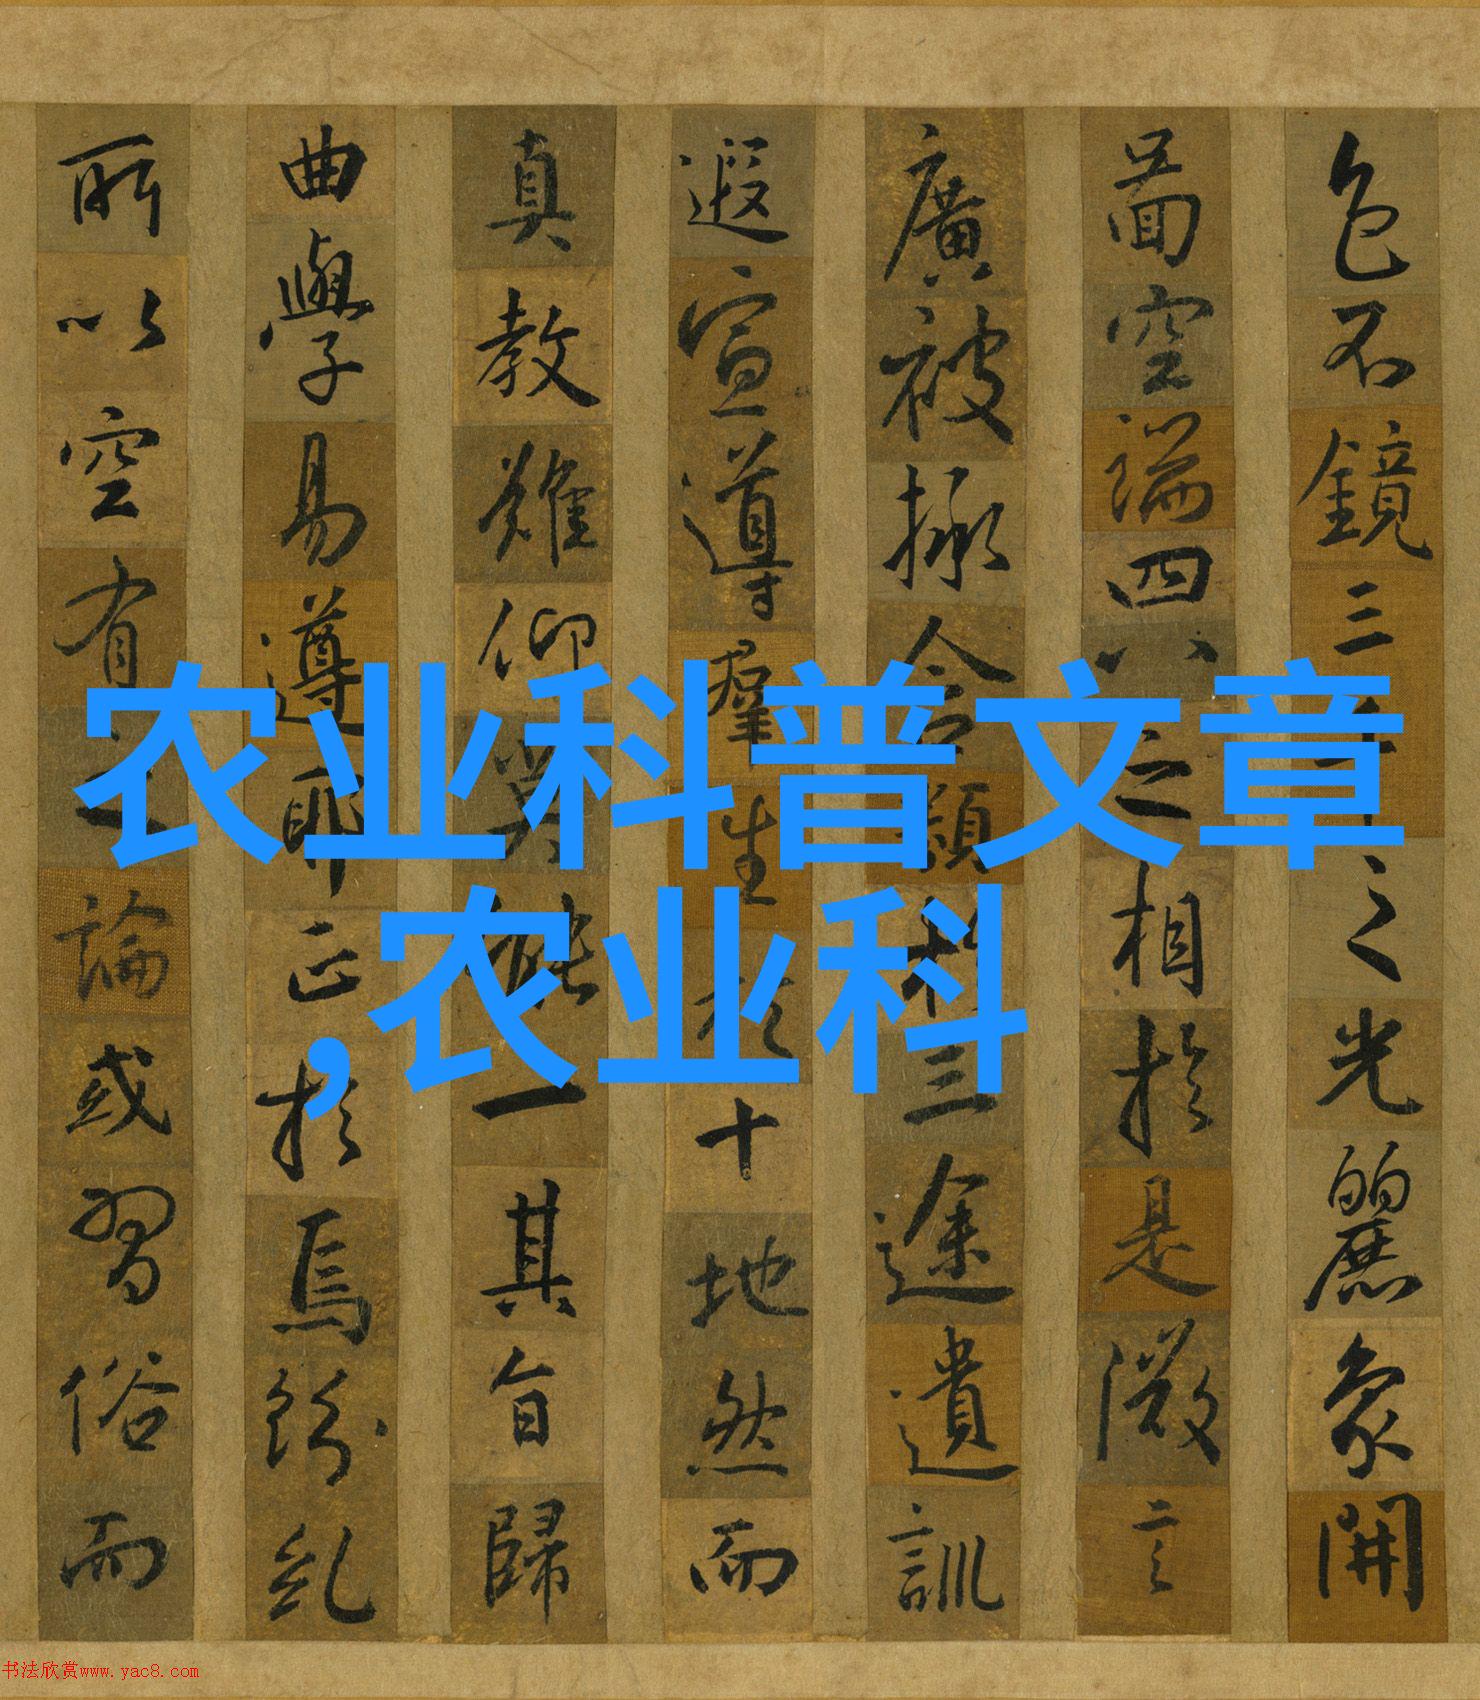 色不鏡三千之光麗象開
啚空端四八之相於是微言
廣被拯含類於三途遺訓
遐宣導羣生於十地然而
真教難仰莫能一其旨歸
曲學易遵耶正於焉紛糺
所以空有之論或習俗而
农业科普文章
,农业科
书法欣赏www.yac8.com